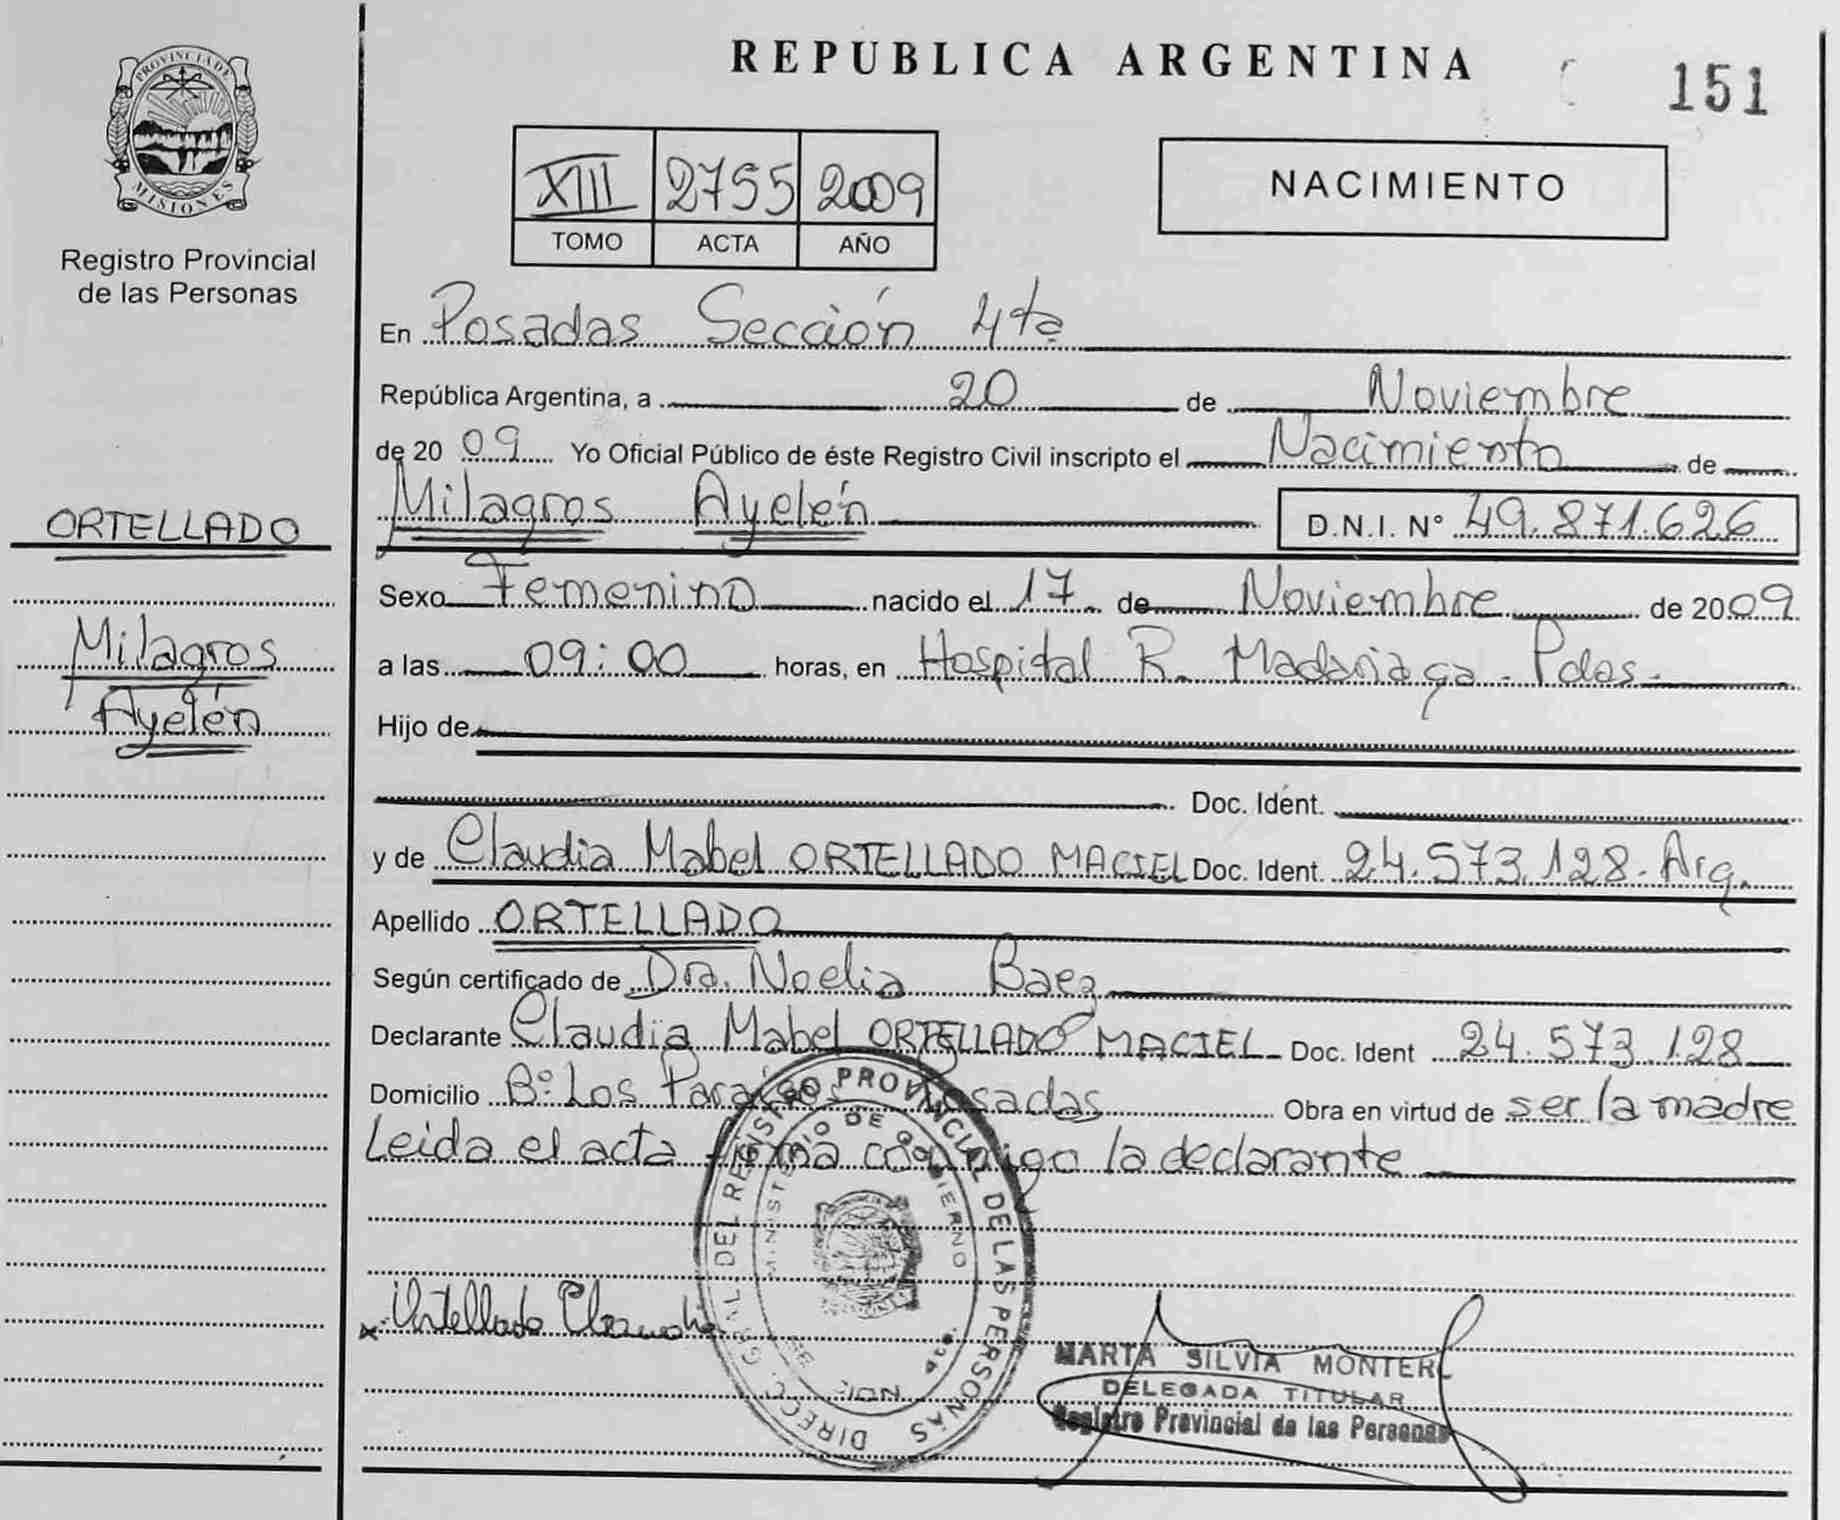 REPUBLICA ARGENTINA
151
PROVINCIA DE
MISIONES
Registro Provincial
de las Personas
XIII 2755 2009
TOMO ACTA AÑO
NACIMIENTO
En Posadas Sección 4ta
República Argentina, a 20 de Noviembre
de 20 09 Yo Oficial Público de éste Registro Civil inscripto el Nacimiento de
Milagros Ayelén D.N.I. N° 49.871.626
ORTELLADO
Milagros
Ayelén
Sexo Femenino nacido el 17 de Noviembre de 20 09
a las 09:00 horas, en Hospital R. Madariaga - Pdas.
Hijo de
Doc. Ident.
y de Claudia Mabel ORTELLADO MACIEL Doc. Ident. 24.573.128. Arg.
Apellido ORTELLADO
Según certificado de Dra. Noelia Baez
Declarante Claudia Mabel ORTELLADO MACIEL Doc. Ident 24.573.128
Domicilio B° Los Paraísos Posadas Obra en virtud de ser la madre
Leida el acta firma conmigo la declarante
DIRECC. GRAL. DEL REGISTRO PROVINCIAL DE LAS PERSONAS
MINISTERIO DE GOBIERNO
x Ortellado Claudia
MARTA SILVIA MONTERO
DELEGADA TITULAR
Registro Provincial de las Personas